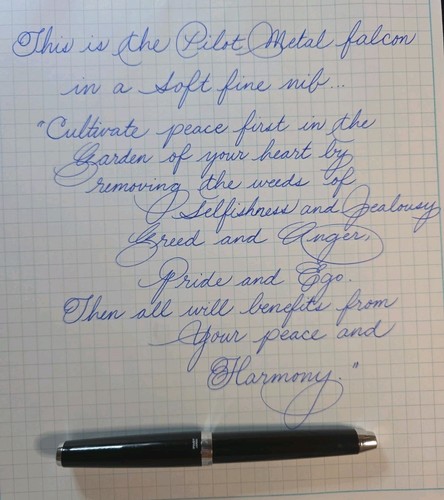 This is the Pilot Metal falcon
in a soft fine nib...
"Cultivate peace first in the
Garden of your heart by
removing the weeds of
Selfishness and Jealousy
Greed and Anger,
Pride and Ego.
Then all will benefits from
Your peace and
Harmony."